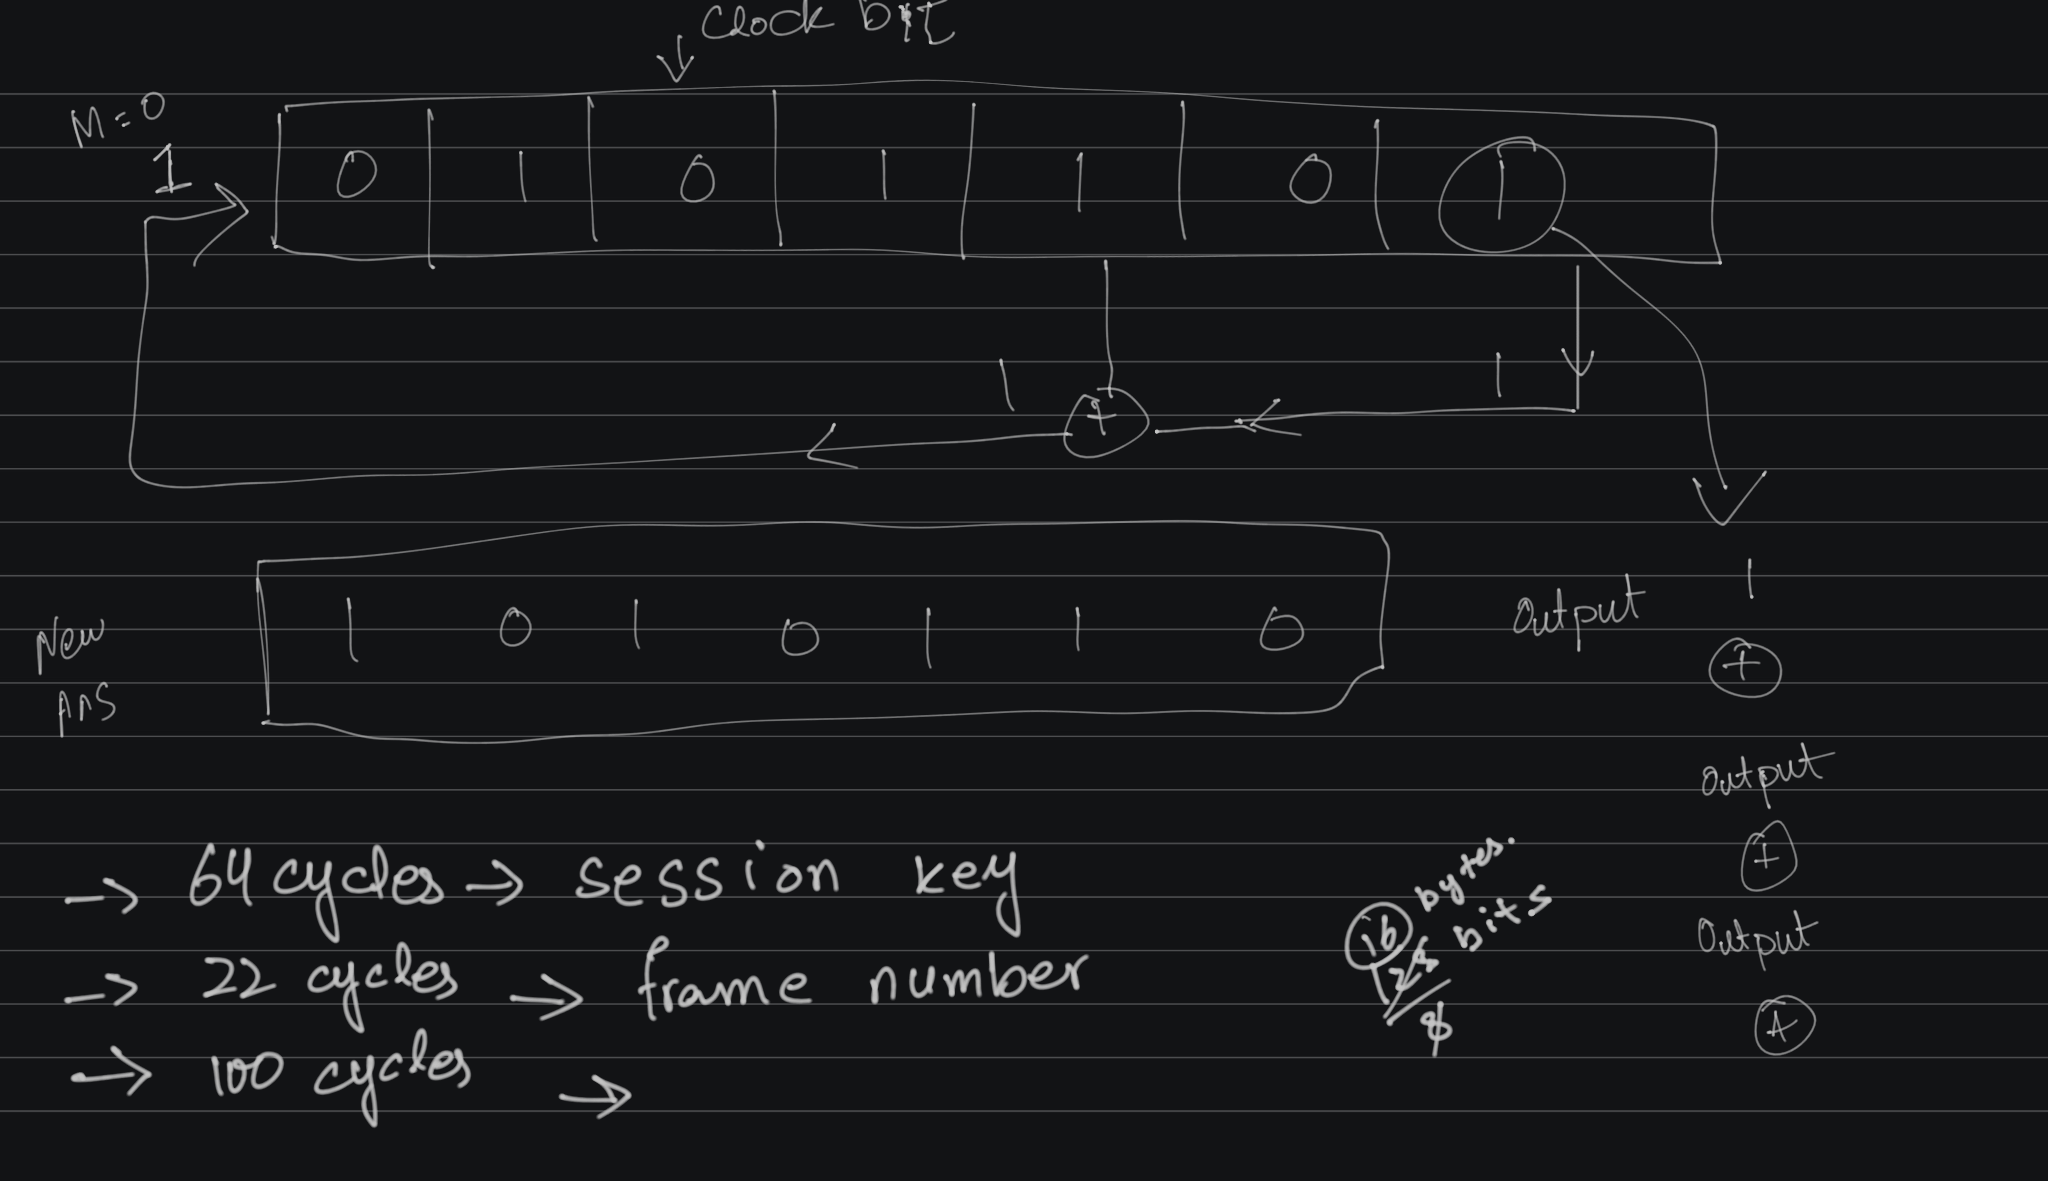 Clock bit
M=0
1
0 1 0 1 1 0 1
1 + 1
New 1 0 1 0 1 1 0 Output 1
Ans
+
Output
+
Output
+
→ 64 cycles → session key
→ 22 cycles → frame number
→ 100 cycles →
16 bytes.
128 bits
8